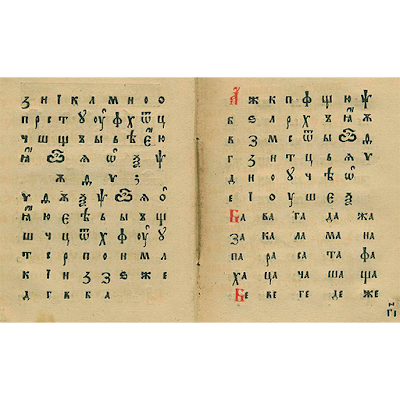 з и і к л м н о о
п р с т у оу ф х ѿ ц
ч ш щ ъ ы ь ѣ є ю
ꙗ ѽ ѧ ѡ ѯ ѱ
у ѯ ѱ ѽ ѧ ѡ
ꙗ ю є ѣ ь ы ъ щ
ш ч ц ѿ х ф оу у
т с р п о н м л
к і и з ꙁ ѕ ж е
д г в б а
А ж к п ф щ ю ѱ
б ѕ л р х ъ ꙗ ѫ
в з м с ѿ ы ѽ
г ꙁ н т ц ь ѧ ѵ
д и о оу ч ѣ ѡ
е і о у ш є ѯ
Ба ва га да жа
за ка ла ма на
па ра са та фа
ха ца ча ша ща
Бе ве ге де же
гі